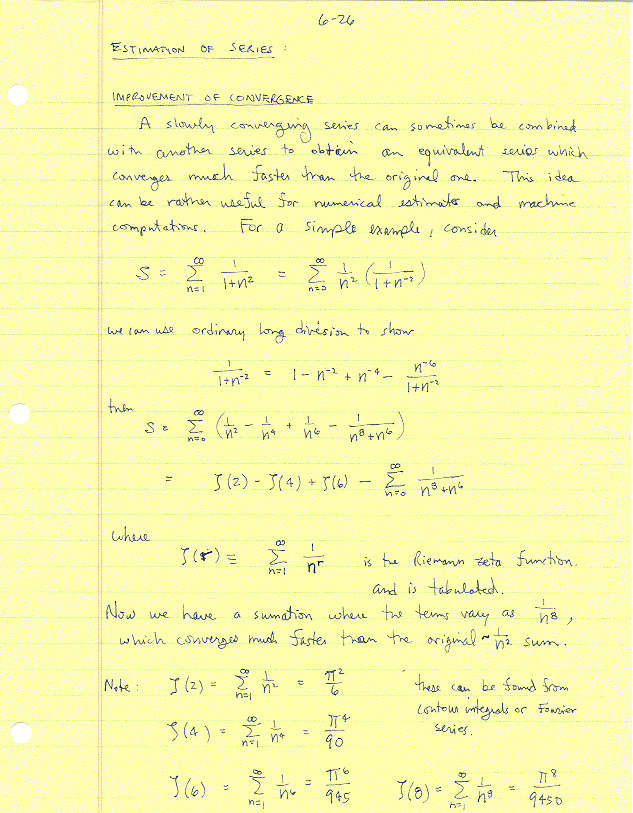 6-26
ESTIMATION OF SERIES :
IMPROVEMENT OF CONVERGENCE
A slowly converging series can sometimes be combined
with another series to obtain an equivalent series which
converges much faster than the original one. This idea
can be rather useful for numerical estimates and machine
computations. For a simple example, consider
S = ∑_{n=1}^{∞} 1/(1+n²) = ∑_{n=0}^{∞} 1/n² (1/(1+n⁻²))
we can use ordinary long division to show
1/(1+n⁻²) = 1 - n⁻² + n⁻⁴ - n⁻⁶/(1+n⁻²)
then
S = ∑_{n=0}^{∞} (1/n² - 1/n⁴ + 1/n⁶ - 1/(n⁸+n⁶))
= ζ(2) - ζ(4) + ζ(6) - ∑_{n=0}^{∞} 1/(n⁸+n⁶)
where
ζ(r) ≡ ∑_{n=1}^{∞} 1/n^r is the Riemann zeta function.
and is tabulated.
Now we have a sumation where the terms vary as 1/n⁸,
which converges much faster than the original ~ 1/n² sum.
Note: ζ(2) = ∑_{n=1}^{∞} 1/n² = π²/6 these can be found from
contour integrals or Fourier
ζ(4) = ∑_{n=1}^{∞} 1/n⁴ = π⁴/90 series.
ζ(6) = ∑_{n=1}^{∞} 1/n⁶ = π⁶/945 ζ(8) = ∑_{n=1}^{∞} 1/n⁸ = π⁸/9450